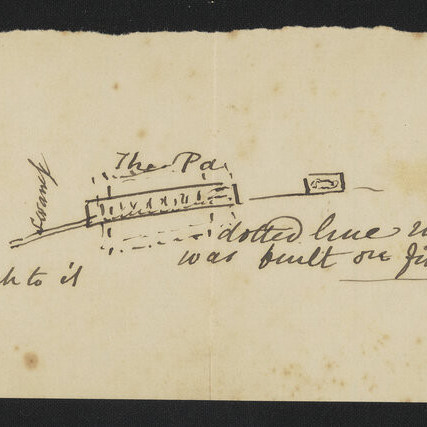 The Pa
swamp
dotted line
was built on
to it